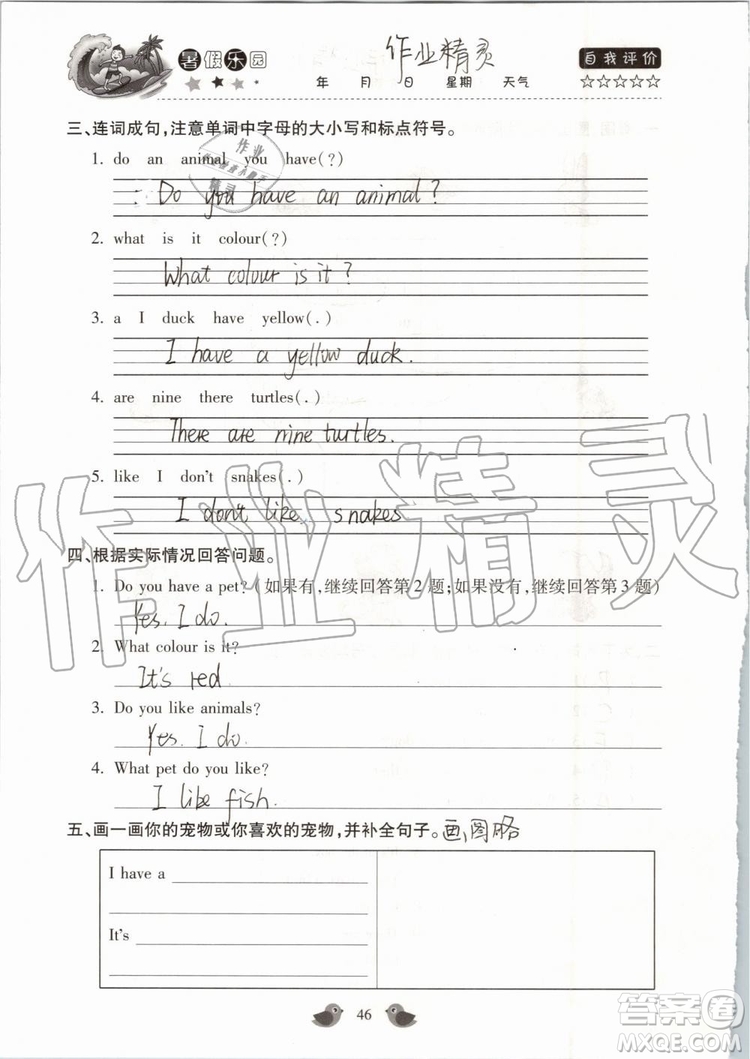 暑假乐园
作业精灵
自我评价
年 月 日 星期 天气
☆☆☆☆☆
三、连词成句,注意单词中字母的大小写和标点符号。
1. do an animal you have(?)
Do you have an animal?
2. what is it colour(?)
What colour is it?
3. a I duck have yellow(.)
I have a yellow duck.
4. are nine there turtles(.)
There are nine turtles.
5. like I don't snakes(.)
I don't like snakes
四、根据实际情况回答问题。
1. Do you have a pet? (如果有,继续回答第2题;如果没有,继续回答第3题)
Yes. I do.
2. What colour is it?
It's red
3. Do you like animals?
Yes. I do.
4. What pet do you like?
I like fish.
五、画一画你的宠物或你喜欢的宠物,并补全句子。画图略
I have a
It's
46
作业精灵
作业
精灵
答案圈
MXQE.COM